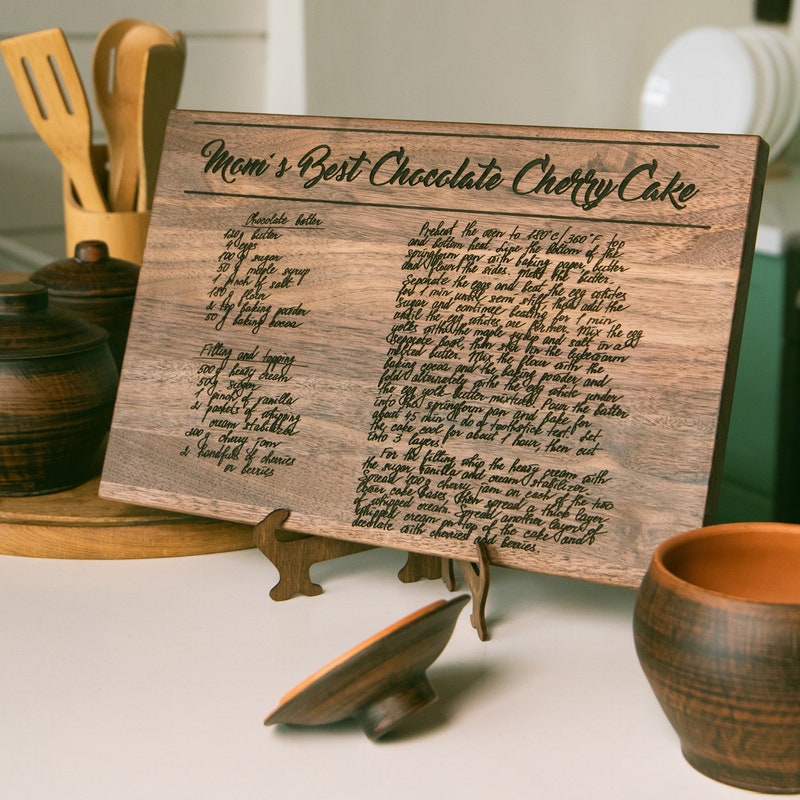 Mom's Best Chocolate Cherry Cake
Chocolate batter
120g butter
eggs
100g sugar
50 g maple syrup
1 pinch of salt
150 g flour
2 tsp baking powder
50 g baking kocoa
Filling and topping
500g heavy cream
50g sugar
1 pinch of vanilla
2 packets of whipping
cream stabilizer
300g cherry jam
2 handfuls of cherries
or berries
Preheat the oven to 180°c/360°F top
and bottom heat. Line the bottom of the
springform pan with baking paper, butter
and flour the sides. Melt the butter.
Separate the eggs and beat the egg whites
for 1 min until semi stiff. Add the
sugar and continue beating for 1 min
until the egg whites are firmer. Mix the egg
yolks with the maple syrup and salt in a
separate bowl, then stir in the
melted butter. Mix the flour with the
baking cocoa and the baking powder and
fold alternately with the egg white under
the egg yolk butter mixture. Pour the batter
into the springform pan and bake for
about 45 min (do a toothstick test). Let
the cake cool for about 1 hour, then cut
into 3 layers.
For the filling whip the heavy cream with
the sugar, vanilla and cream stabilizer.
Spread 400g cherry jam on each of the two
lower cake bases, then spread a thick layer
of whipped cream. Spread another layer of
whipped cream on top of the cake and
decorate with cherries and berries.